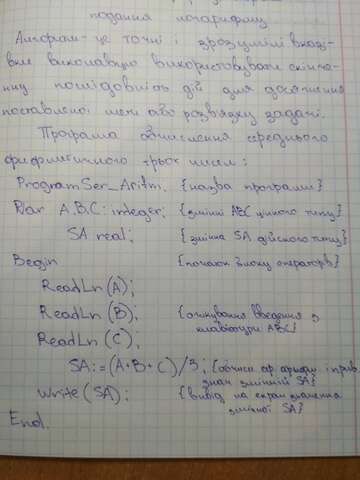 подання логарифму
Алгоритм - це точні і зрозумілі вказі-
вки виконавцю використовувати скінче-
нну послідовність дій для досягнення
поставленої мети або розвязку задачі.
Програма обчислення середнього
арифметичного трьох чисел:
Program Ser_Aritm. {назва программи}
Var A,B,C: integer; {змінні ABC цілого типу}
SA real; {змінна SA дійсного типу}
Begin {початок блоку операторів}
ReadLn (A);
ReadLn (B); {очікування введення з
ReadLn (C); клавіатури ABC}
SA:=(A+B+C)/3; {обчисл ар і прив
знач змінній SA}
Write (SA); {вивід на екран значення
змінної SA}
End.